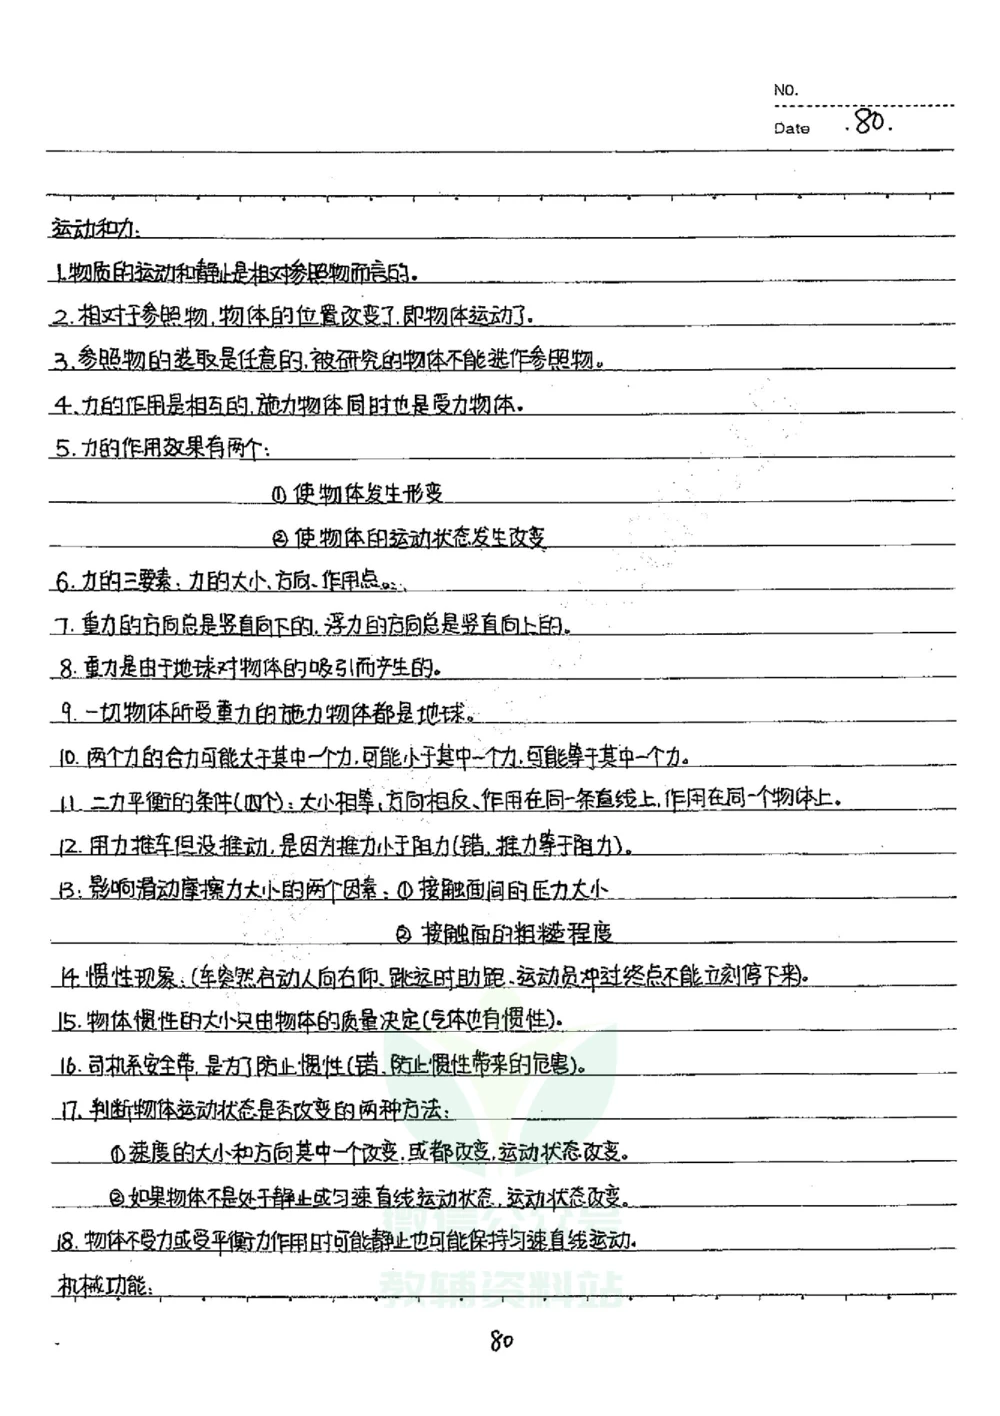 NO.
Date .80.
运动和力:
1.物质的运动和静止是相对参照物而言的。
2.相对于参照物,物体的位置改变了,即物体运动了。
3.参照物的选取是任意的,被研究的物体不能选作参照物。
4.力的作用是相互的,施力物体同时也是受力物体。
5.力的作用效果有两个:
①使物体发生形变
②使物体的运动状态发生改变
6.力的三要素:力的大小、方向、作用点。
7.重力的方向总是竖直向下的,浮力的方向总是竖直向上的。
8.重力是由于地球对物体的吸引而产生的。
9.一切物体所受重力的施力物体都是地球。
10.两个力的合力可能大于其中一个力,可能小于其中一个力,可能等于其中一个力。
11.二力平衡的条件(四个):大小相等、方向相反、作用在同一条直线上,作用在同一个物体上。
12.用力推车但没推动,是因为推力小于阻力(错,推力等于阻力)。
13.影响滑动摩擦力大小的两个因素:①接触面间的压力大小
②接触面的粗糙程度
14.惯性现象:(车突然启动人向右仰、跳远时助跑、运动员冲过终点不能立刻停下来)。
15.物体惯性的大小只由物体的质量决定(气体也有惯性)。
16.司机系安全带,是为了防止惯性(错,防止惯性带来的危害)。
17.判断物体运动状态是否改变的两种方法:
①速度的大小和方向其中一个改变,或都改变,运动状态改变。
②如果物体不是处于静止或匀速直线运动状态,运动状态改变。
18.物体不受力或受平衡力作用时可能静止也可能保持匀速直线运动。
机械功能:
微信公众号
教辅资料站
80